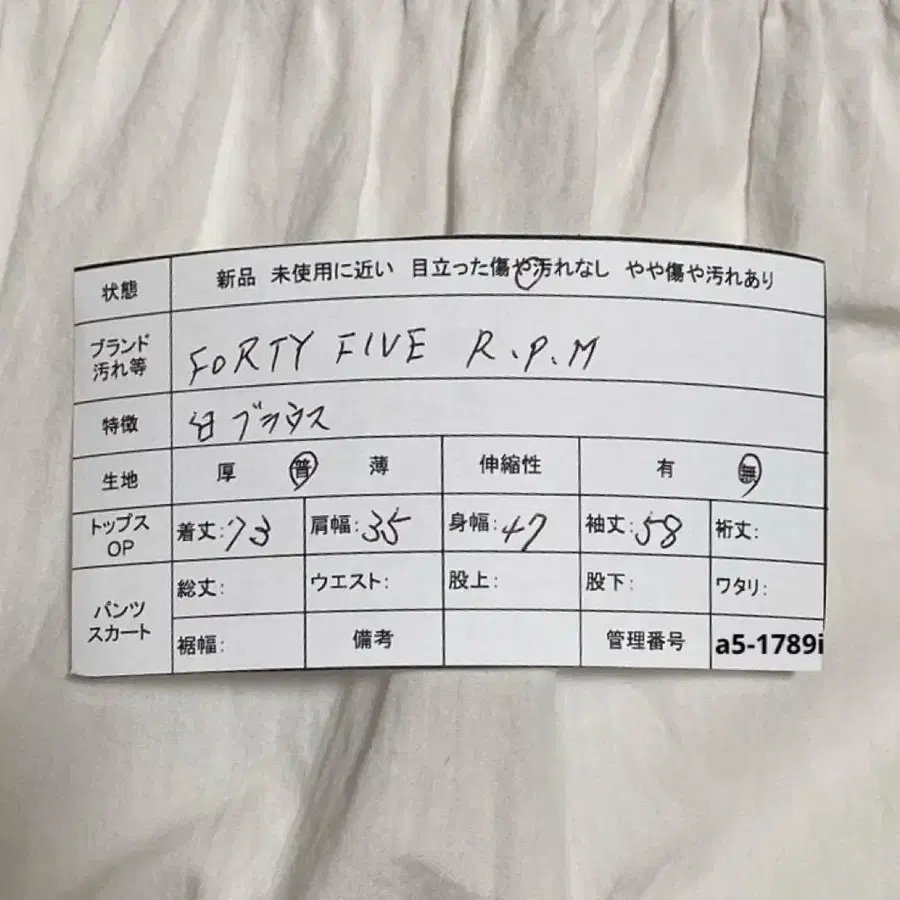 状態 新品 未使用に近い 目立った傷や汚れなし やや傷や汚れあり
ブランド
汚れ等 FORTY FIVE R.P.M
特徴 白ブラウス
生地 厚 普 薄 伸縮性 有 無
トップス
OP 着丈:73 肩幅:35 身幅:47 袖丈:58 裄丈:
パンツ
スカート 総丈: ウエスト: 股上: 股下: ワタリ:
裾幅: 備考 管理番号 a5-1789i